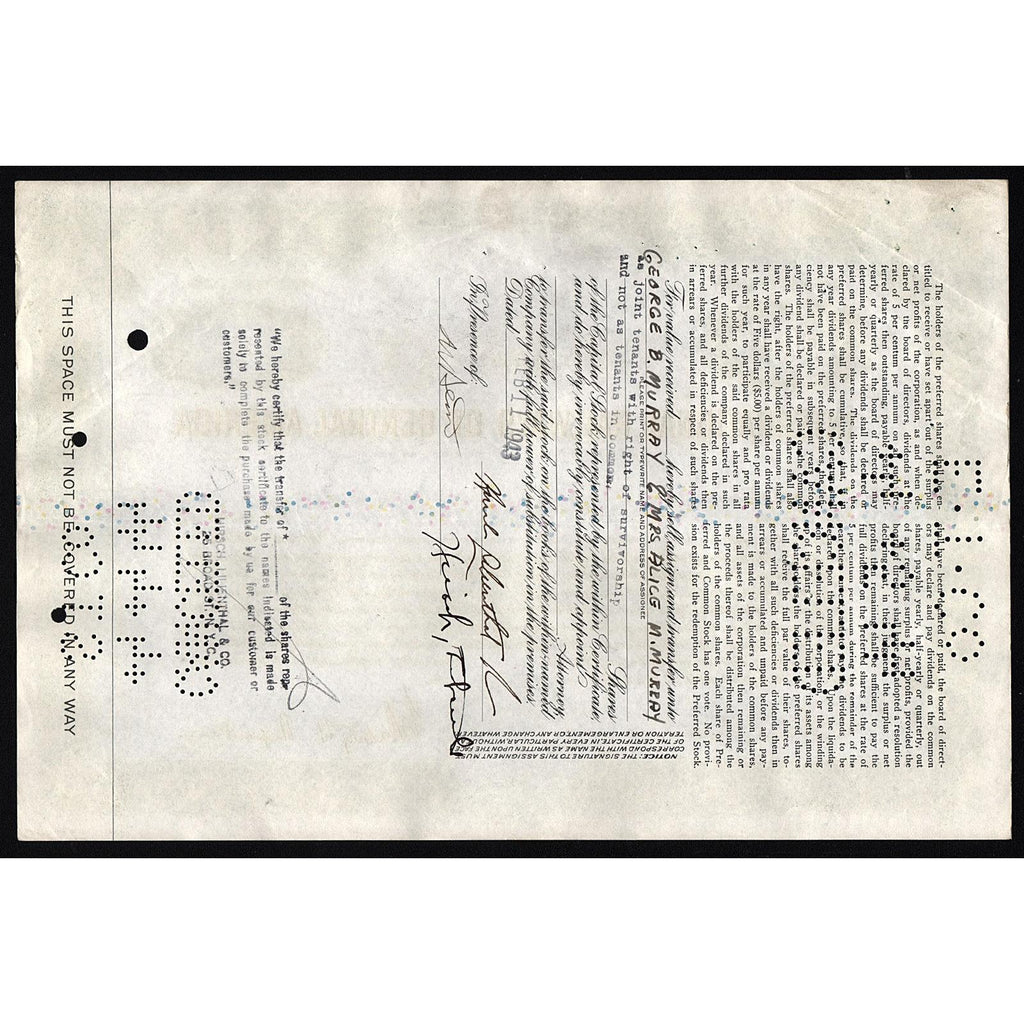 The holders of the preferred shares shall be en-
titled to receive or have set apart out of the surplus
or net profits of the corporation, as and when de-
clared by the board of directors, dividends at the
rate of 5 per centum per annum on all such pre-
ferred shares then outstanding, payable yearly, half-
yearly or quarterly as the board of directors may
determine, before any dividends shall be declared or
paid on the common shares. The dividends on the
preferred shares shall be cumulative, so that, if in
any year dividends amounting to 5 per centum shall
not have been paid on the preferred shares, the defi-
ciency shall be payable in subsequent years before
any dividend shall be declared or paid on the common
shares. The holders of the preferred shares shall also
have the right, after the holders of common shares
in any year shall have received a dividend or dividends
at the rate of Five dollars ($5.00) per share per annum
for such year, to participate equally and pro rata
with the holders of the said common shares in all
further dividends of the company declared in such
year. Whenever a dividend is declared on the pre-
ferred shares, and all deficiencies or dividends then
in arrears or accumulated in respect of such shares
shall have been declared or paid, the board of direct-
ors may declare and pay dividends on the common
shares, payable yearly, half-yearly or quarterly, out
of any remaining surplus or net profits, provided the
board of directors shall have first adopted a resolution
declaring that, in their judgment, the surplus or net
profits then remaining shall be sufficient to pay the
full dividend on the preferred shares at the rate of
5 per centum per annum during the remainder of the
year then current and to pay the dividends to be
declared upon the common shares. Upon the liquida-
tion or dissolution of the corporation, or the winding
up of its affairs or the distribution of its assets among
the shareholders, the holders of the preferred shares
shall receive the full par value of their shares, to-
gether with all such deficiencies or dividends then in
arrears or accumulated and unpaid before any pay-
ment is made to the holders of the common shares,
and all assets of the corporation then remaining or
the proceeds thereof shall be distributed among the
holders of the common shares. Each share of Pre-
ferred and Common Stock has one vote. No provi-
sion exists for the redemption of the Preferred Stock.
For value received hereby sell, assign and transfer unto
GEORGE B. MURRAY & MRS. ALICE M. MURRAY
PLEASE PRINT OR TYPEWRITE NAME AND ADDRESS OF ASSIGNEE
as joint tenants with right of survivorship
and not as tenants in common,
Shares
of the Capital Stock represented by the within Certificate,
and do hereby irrevocably constitute and appoint
Attorney
to transfer the said stock on the books of the within-named
Company with full power of substitution in the premises.
Dated 1943
In Presence of:
NOTICE: THE SIGNATURE TO THIS ASSIGNMENT MUST
CORRESPOND WITH THE NAME AS WRITTEN UPON THE FACE
OF THE CERTIFICATE IN EVERY PARTICULAR, WITHOUT AL-
TERATION OR ENLARGEMENT OR ANY CHANGE WHATEVER
"We hereby certify that the transfer of * of the shares rep-
resented by this stock certificate to the names indicated is made
solely to complete the purchase made by us for our customer or
customers."
& CO.
25 BROAD ST. N.Y.C.
THIS SPACE MUST NOT BE COVERED IN ANY WAY